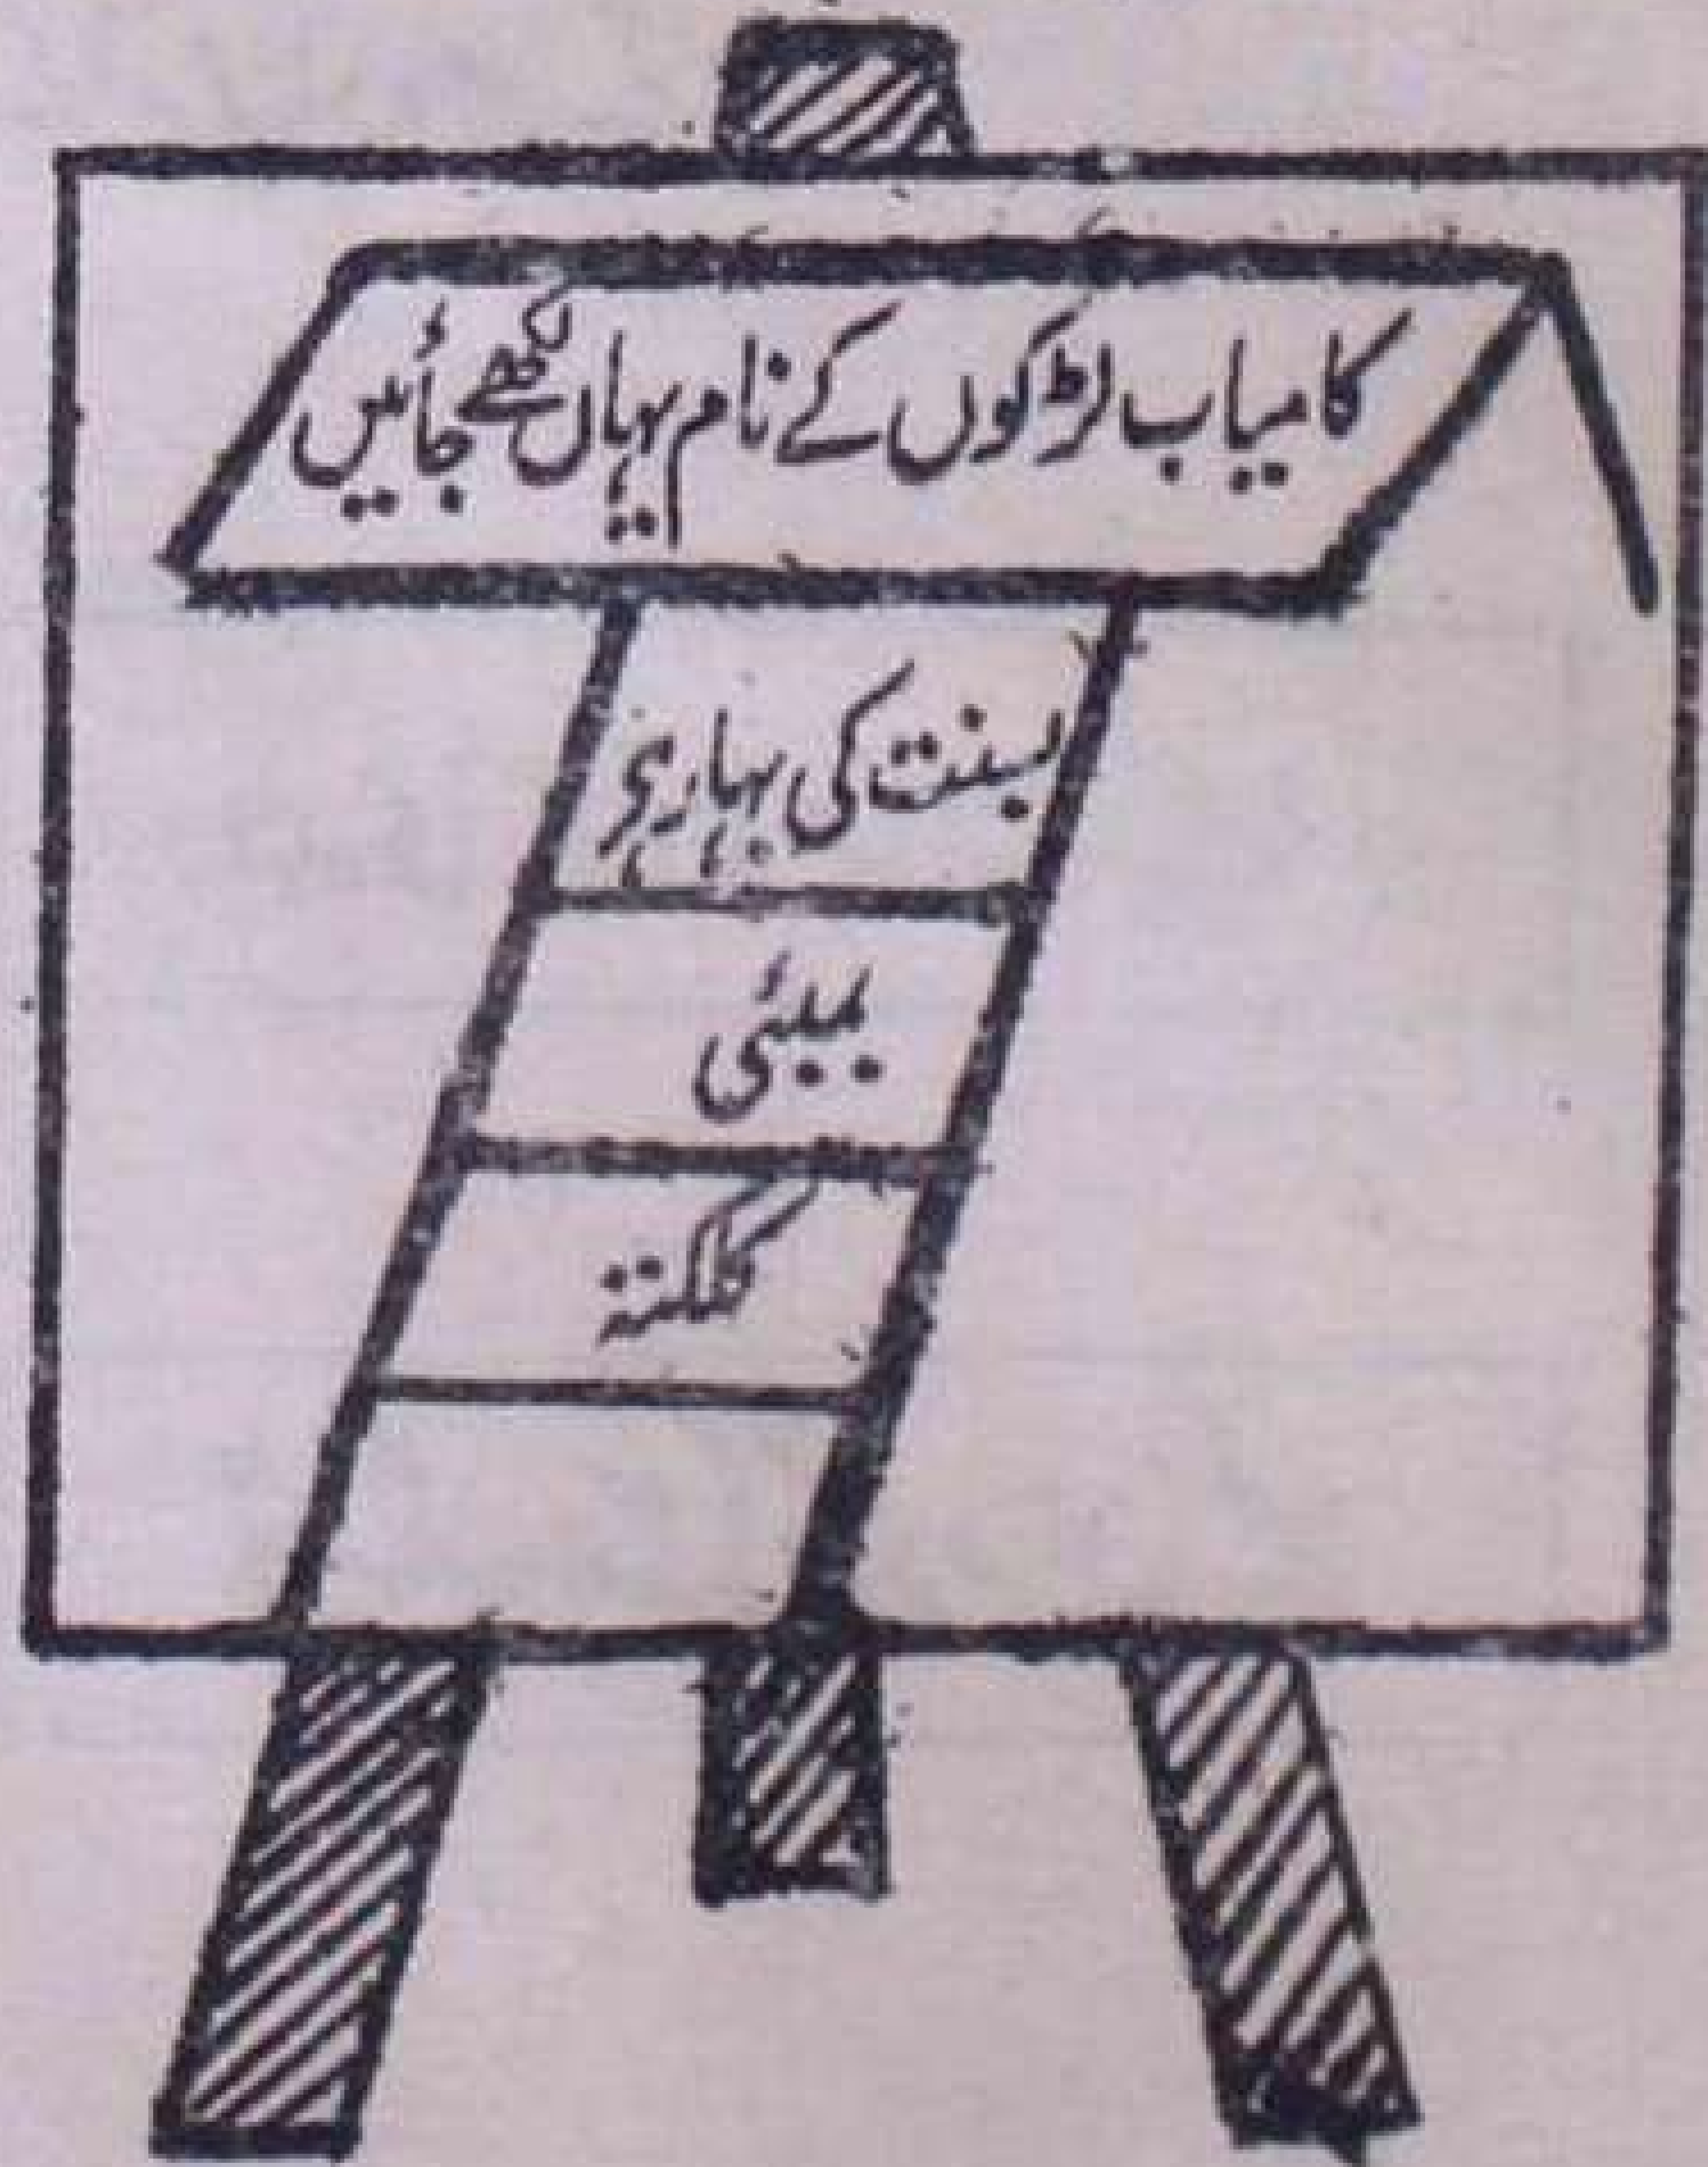 کامیاب لڑکوں کے نام یہاں لکھے جائیں
بسنت کی بہاری
بمبئی
کلکتہ